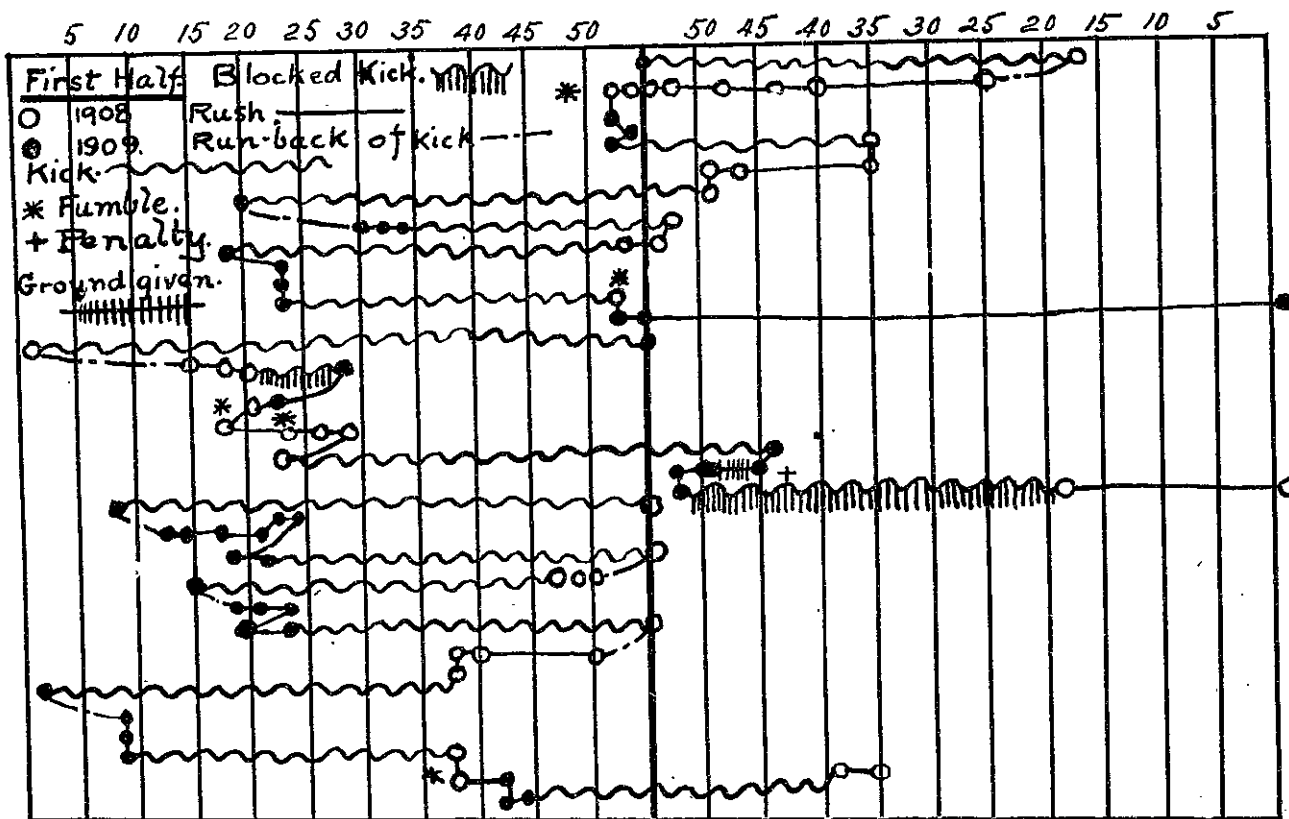 5 10 15 20 25 30 35 40 45 50 50 45 40 35 30 25 20 15 10 5
First Half. Blocked Kick.
1908 Rush
1909. Run-back of kick
Kick.
* Fumble. *
+ Penalty.
Ground given. *
* *
+
*